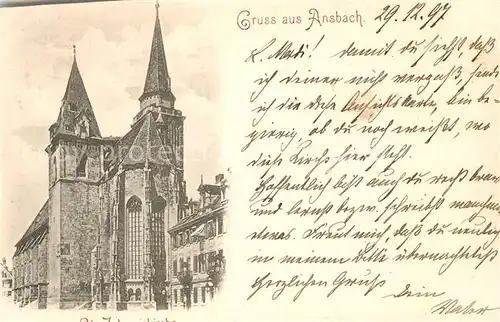 Gruss aus Ansbach. 29.12.97
L. Medi! Damit du siehst, daß
ich deiner nicht vergaß, sende
ich dir diese Ansichtskarte, bin be-
gierig, ob du noch weißt, wo
diese Kirche hier steht.
Hoffentlich bist auch du recht brav
und lernst bezw. schreibst manchmal
etwas. Freut mich, daß du neulich
in meinem Bette übernachtetest
Herzlichen Gruß
Dein